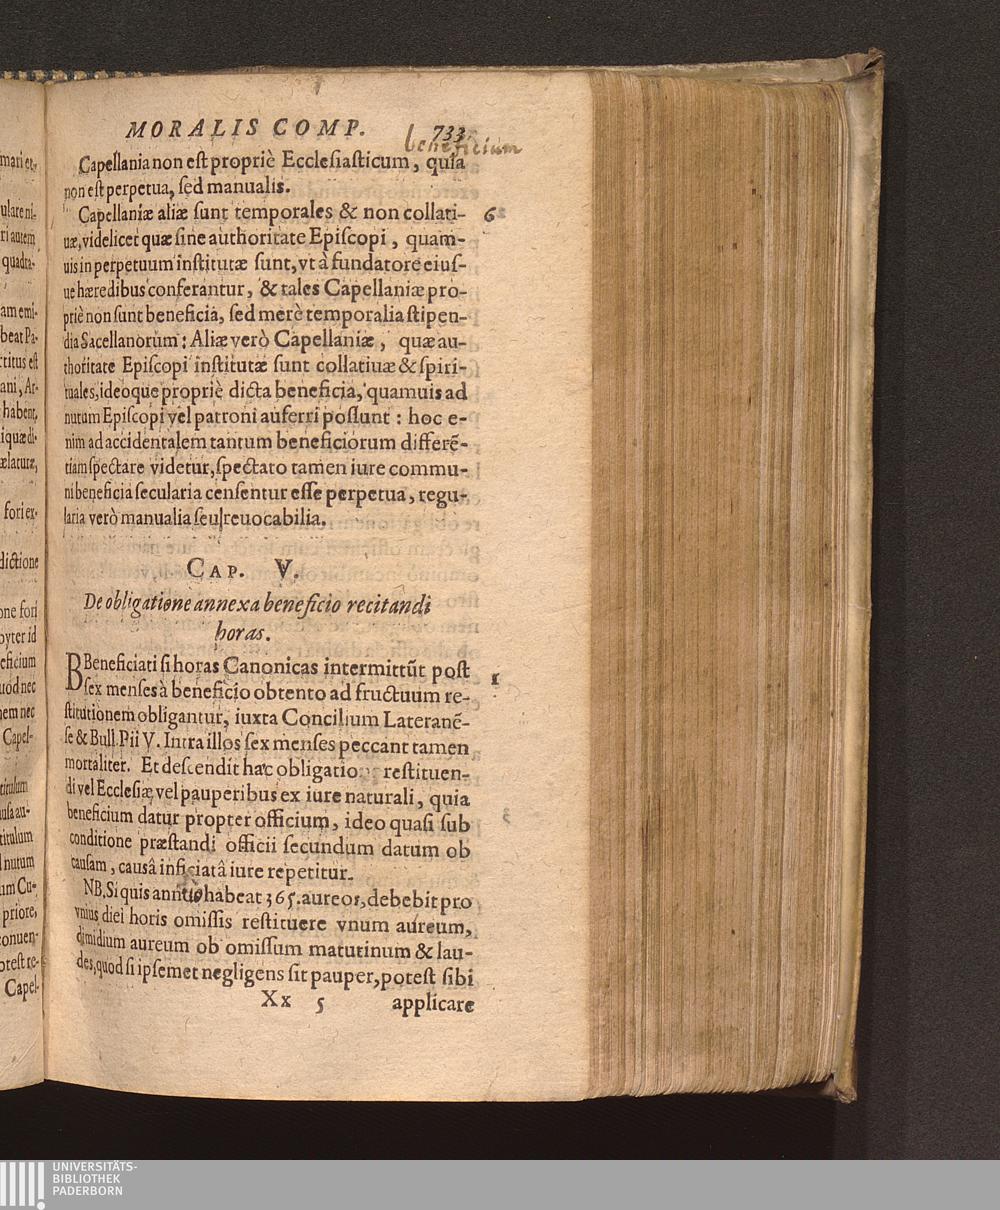 MORALIS COMP. 733.
beneficium
Capellania non est propriè Ecclesiasticum, quia
non est perpetua, sed manualis.
Capellaniæ aliæ sunt temporales & non collati- 6
uæ, videlicet quæ sine authoritate Episcopi, quam-
uis in perpetuum institutæ sunt, vt à fundatore eius-
ue hæredibus conferantur, & tales Capellaniæ pro-
priè non sunt beneficia, sed merè temporalia stipen-
dia Sacellanorum: Aliæ verò Capellaniæ, quæ au-
thoritate Episcopi institutæ sunt collatiuæ & spiri-
tuales, ideoque propriè dicta beneficia, quamuis ad
nutum Episcopi vel patroni auferri possunt: hoc e-
nim ad accidentalem tantum beneficiorum differē-
tiam spectare videtur, spectato tamen iure commu-
ni beneficia secularia censentur esse perpetua, regu-
laria verò manualia seu reuocabilia.
CAP. V.
De obligatione annexa beneficio recitandi
horas.
BBeneficiati si horas Canonicas intermittūt post 1
sex menses à beneficio obtento ad fructuum re-
stitutionem obligantur, iuxta Concilium Lateranē-
se & Bull. Pii V. Intra illos sex menses peccant tamen
mortaliter. Et descendit hæc obligatio restituen-
di vel Ecclesiæ, vel pauperibus ex iure naturali, quia
beneficium datur propter officium, ideo quasi sub
conditione præstandi officii secundum datum ob
causam, causâ inficiatâ iure repetitur.
NB. Si quis annuo habeat 365. aureos, debebit pro
vnius diei horis omissis restituere vnum aureum,
dimidium aureum ob omissum matutinum & lau-
des, quod si ipsemet negligens sit pauper, potest sibi
Xx 5 applicare
mari et,
ulare ni-
ri autem
quadra-
am emi-
beat Pa-
titus est
ani, Ar-
habent,
iquæ di-
ælaturæ,
fori ex-
dictione
one fori
byter id
eficium
uòd nec
nem nec
Capel-
titulum
usa au-
titulum
nutum
um Cu-
priore,
conuen-
otest re-
Capel-
UNIVERSITÄTS-
BIBLIOTHEK
PADERBORN